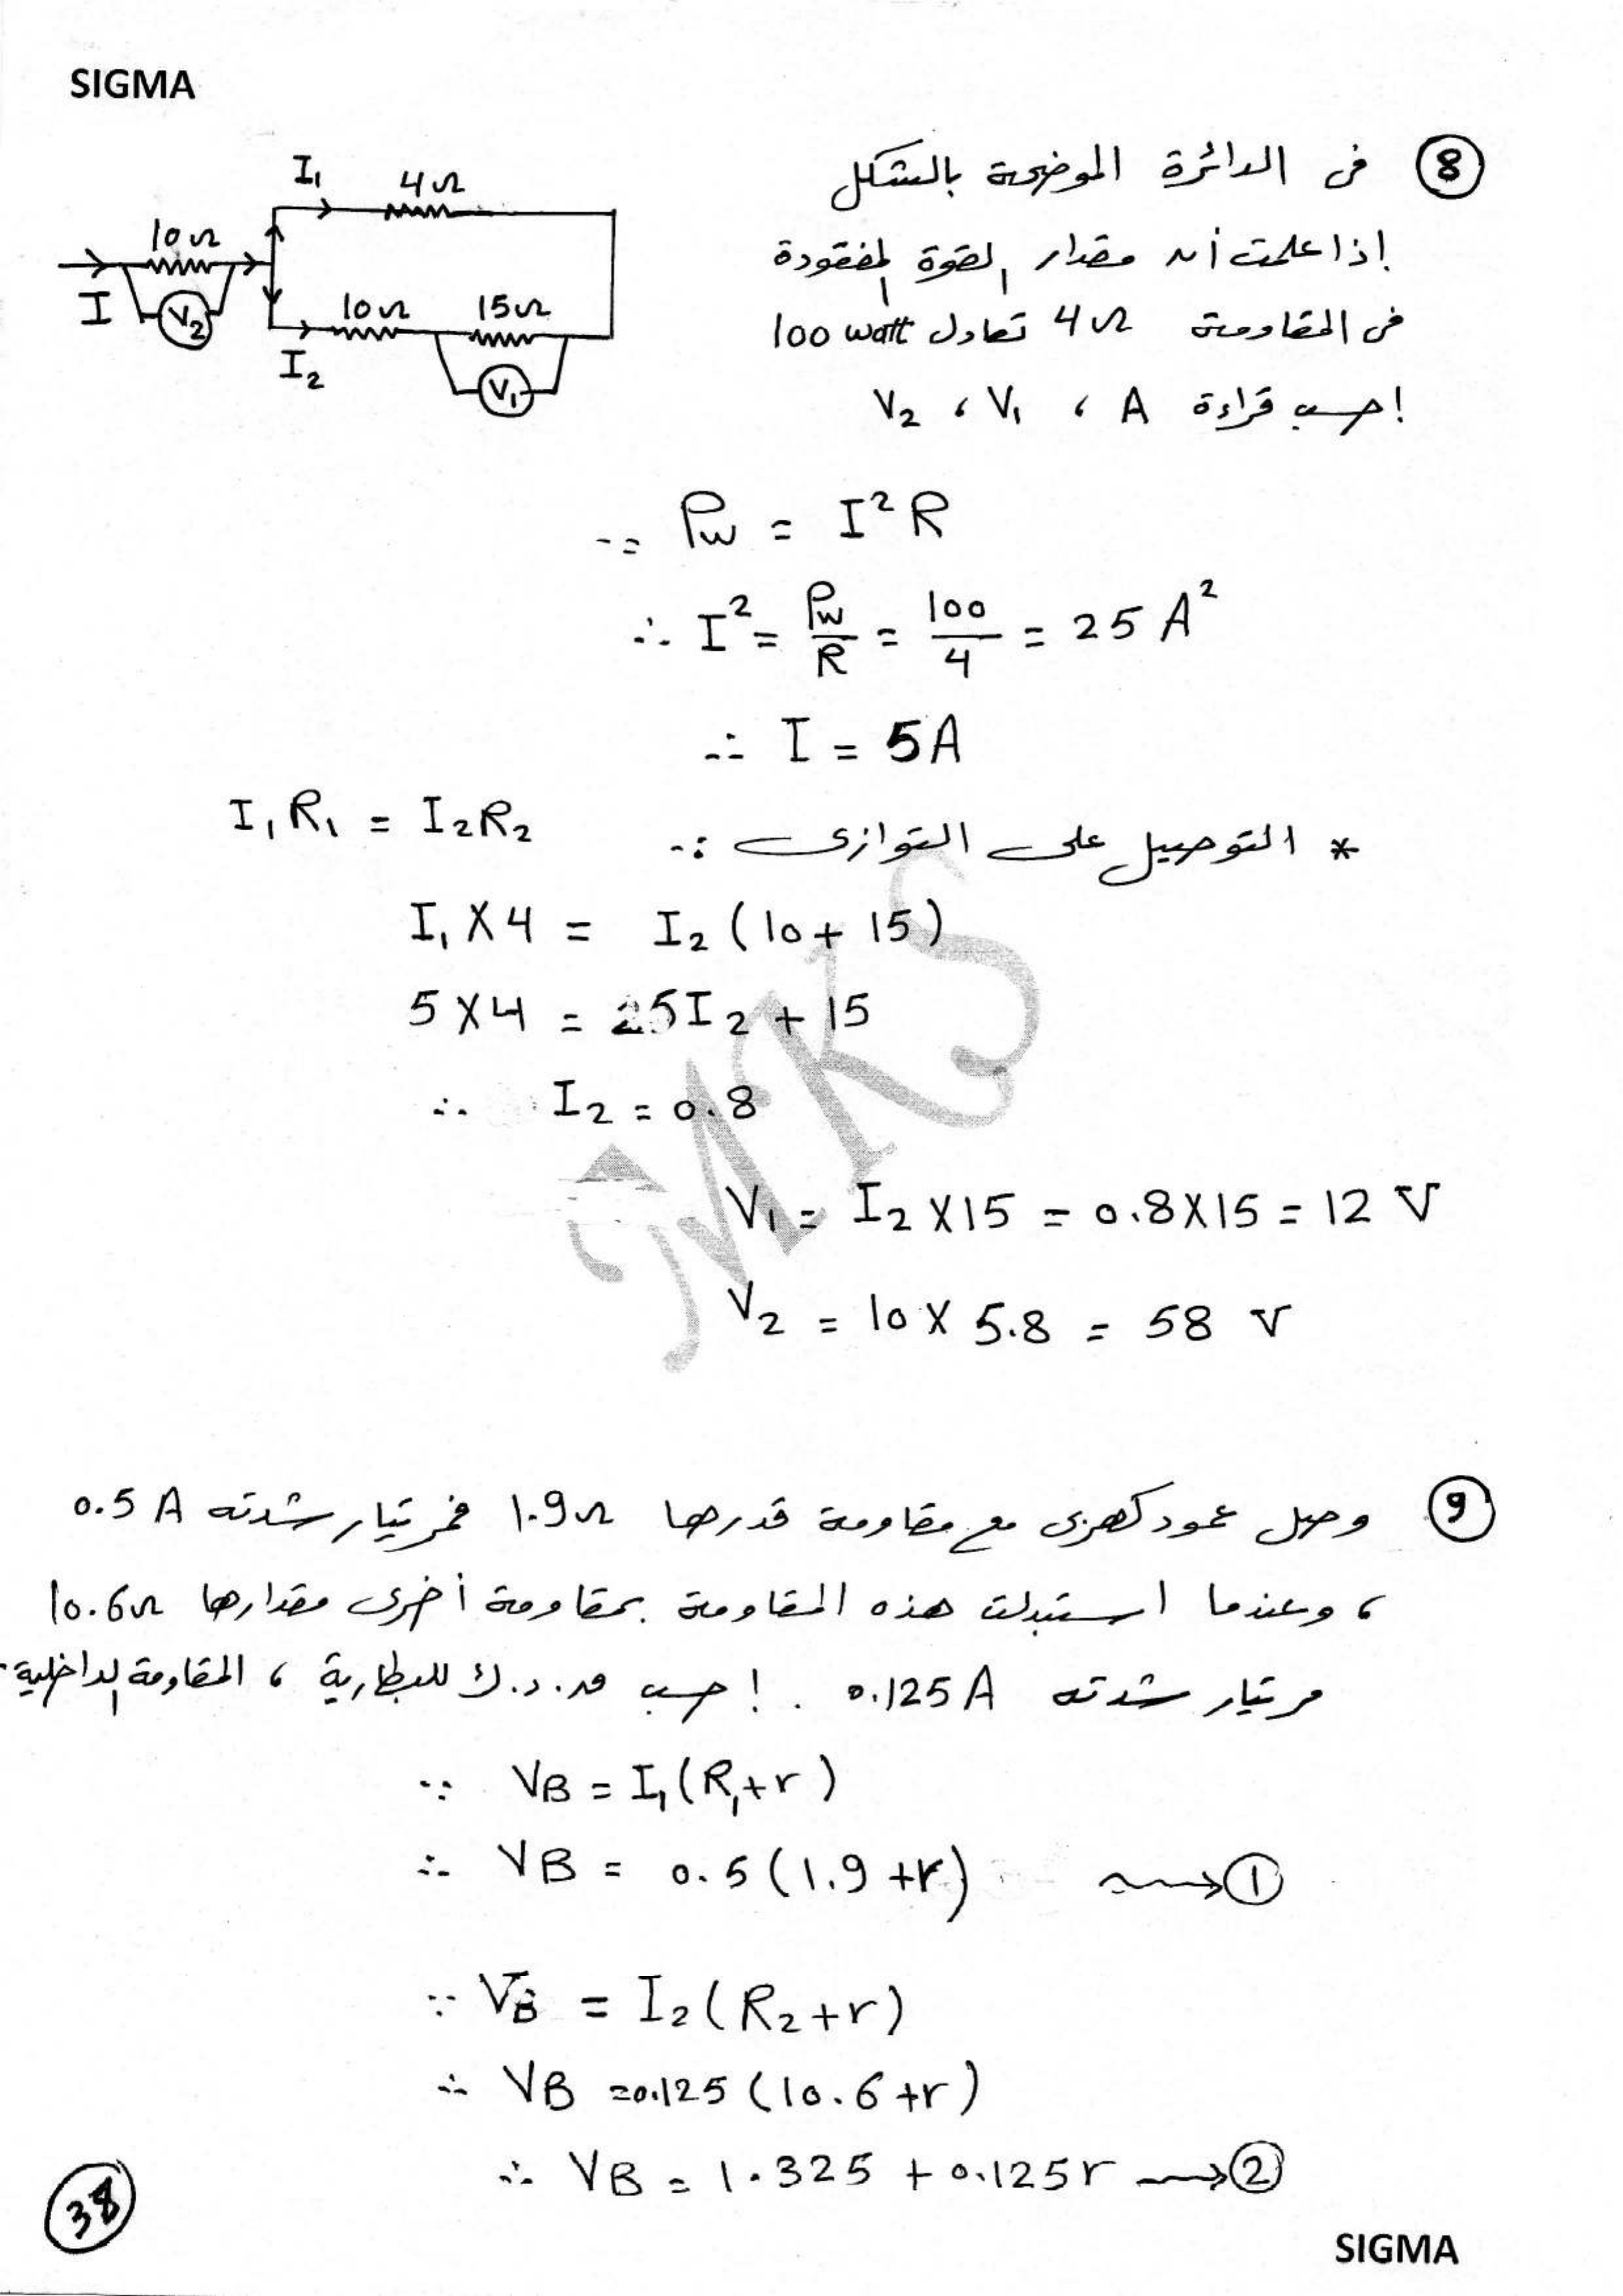 SIGMA
⑧ فى الدائرة الموضحة بالشكل
إذا علمت أن مقدار القوة المفقودة
فى المقاومة 4Ω تعادل 100 watt
احسب قراءة A ، V₁ ، V₂
I₁ 4Ω
10Ω
I V₂
10Ω 15Ω
I₂ V₁
∵ Pw = I² R
∴ I² = Pw/R = 100/4 = 25 A²
∴ I = 5A
* التوصيل على التوازى ∴ I₁R₁ = I₂R₂
I₁ X 4 = I₂ (10 + 15)
5 X 4 = 25I₂ + 15
∴ I₂ = 0.8
V₁ = I₂ X 15 = 0.8 X 15 = 12 V
V₂ = 10 X 5.8 = 58 V
MKS
⑨ وصل عمود كهربى مع مقاومة قدرها 1.9Ω فمر تيار شدته 0.5 A
، وعندما استبدلت هذه المقاومة بمقاومة أخرى مقدارها 10.6Ω
مر تيار شدته 0.125A . احسب ق.د.ك للبطارية ، المقاومة الداخلية.
∵ VB = I₁(R₁+r)
∴ VB = 0.5 (1.9 +r) → ①
∵ VB = I₂(R₂+r)
∴ VB =0.125 (10.6 +r)
∴ VB = 1.325 + 0.125r → ②
38
SIGMA